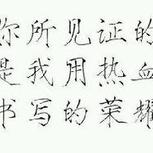 你所见证的
是我用热血
书写的荣耀